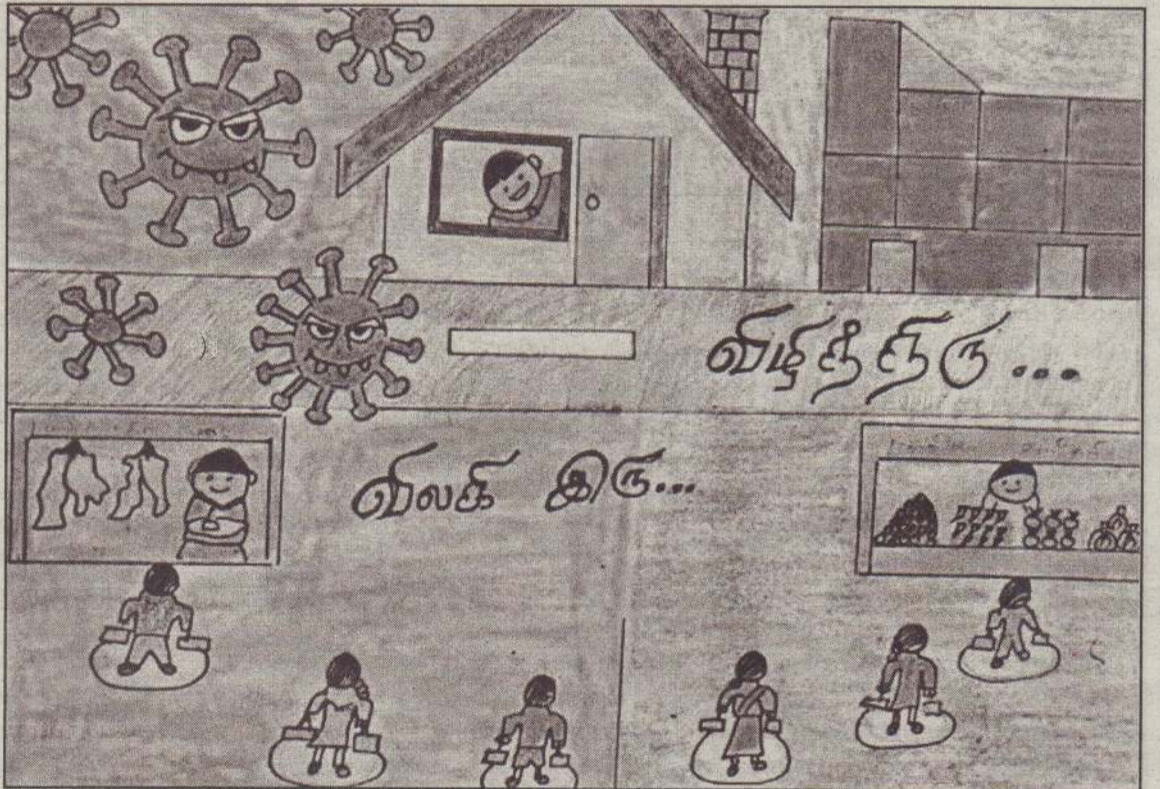 விழித்திரு...
விலகி இரு...